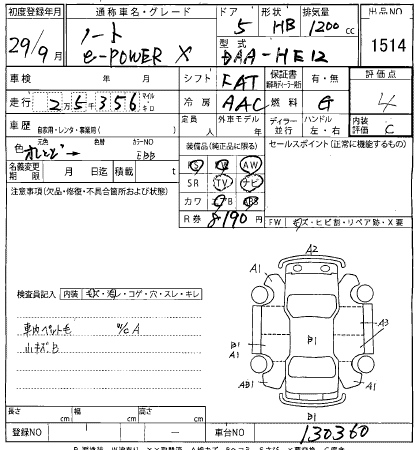 初度登録年月 通称車名・グレード ドア 形状 排気量 出品NO
29/9月 ノート e-POWER X 5 HB 1200 cc 1514
型式 DAA-HE12
車検 年 月 シフト FAT 保証書 有・無 評価点 4
走行 25356 マイル キロ 冷房 AAC 燃料 G 内装評価 C
車歴 自家用・レンタ・事業用( ) 定員 人 外車モデル 年 ディーラー 並行 ハンドル 左・右
色 元色 色替 カラーNO EBB
装備品(純正品に限る) セールスポイント(正常に機能するもの)
名義変更期限 月 日迄 積載 t
PS PW AW
SR TV ナビ
カワ エアB ABS
R券 8190円
注意事項(欠品・修復・不具合箇所および状態)
FW キズ・ヒビ割・リペア跡・X要
検査員記入 内装 キズ・汚レ・コゲ・穴・スレ・キレ
車内ペット毛 W/C A
小キズB
A2
A1 A1
B1 A1 B1 A3
AB1 A1
B1
長さ cm 幅 cm 高さ cm
登録NO 車台NO 130360